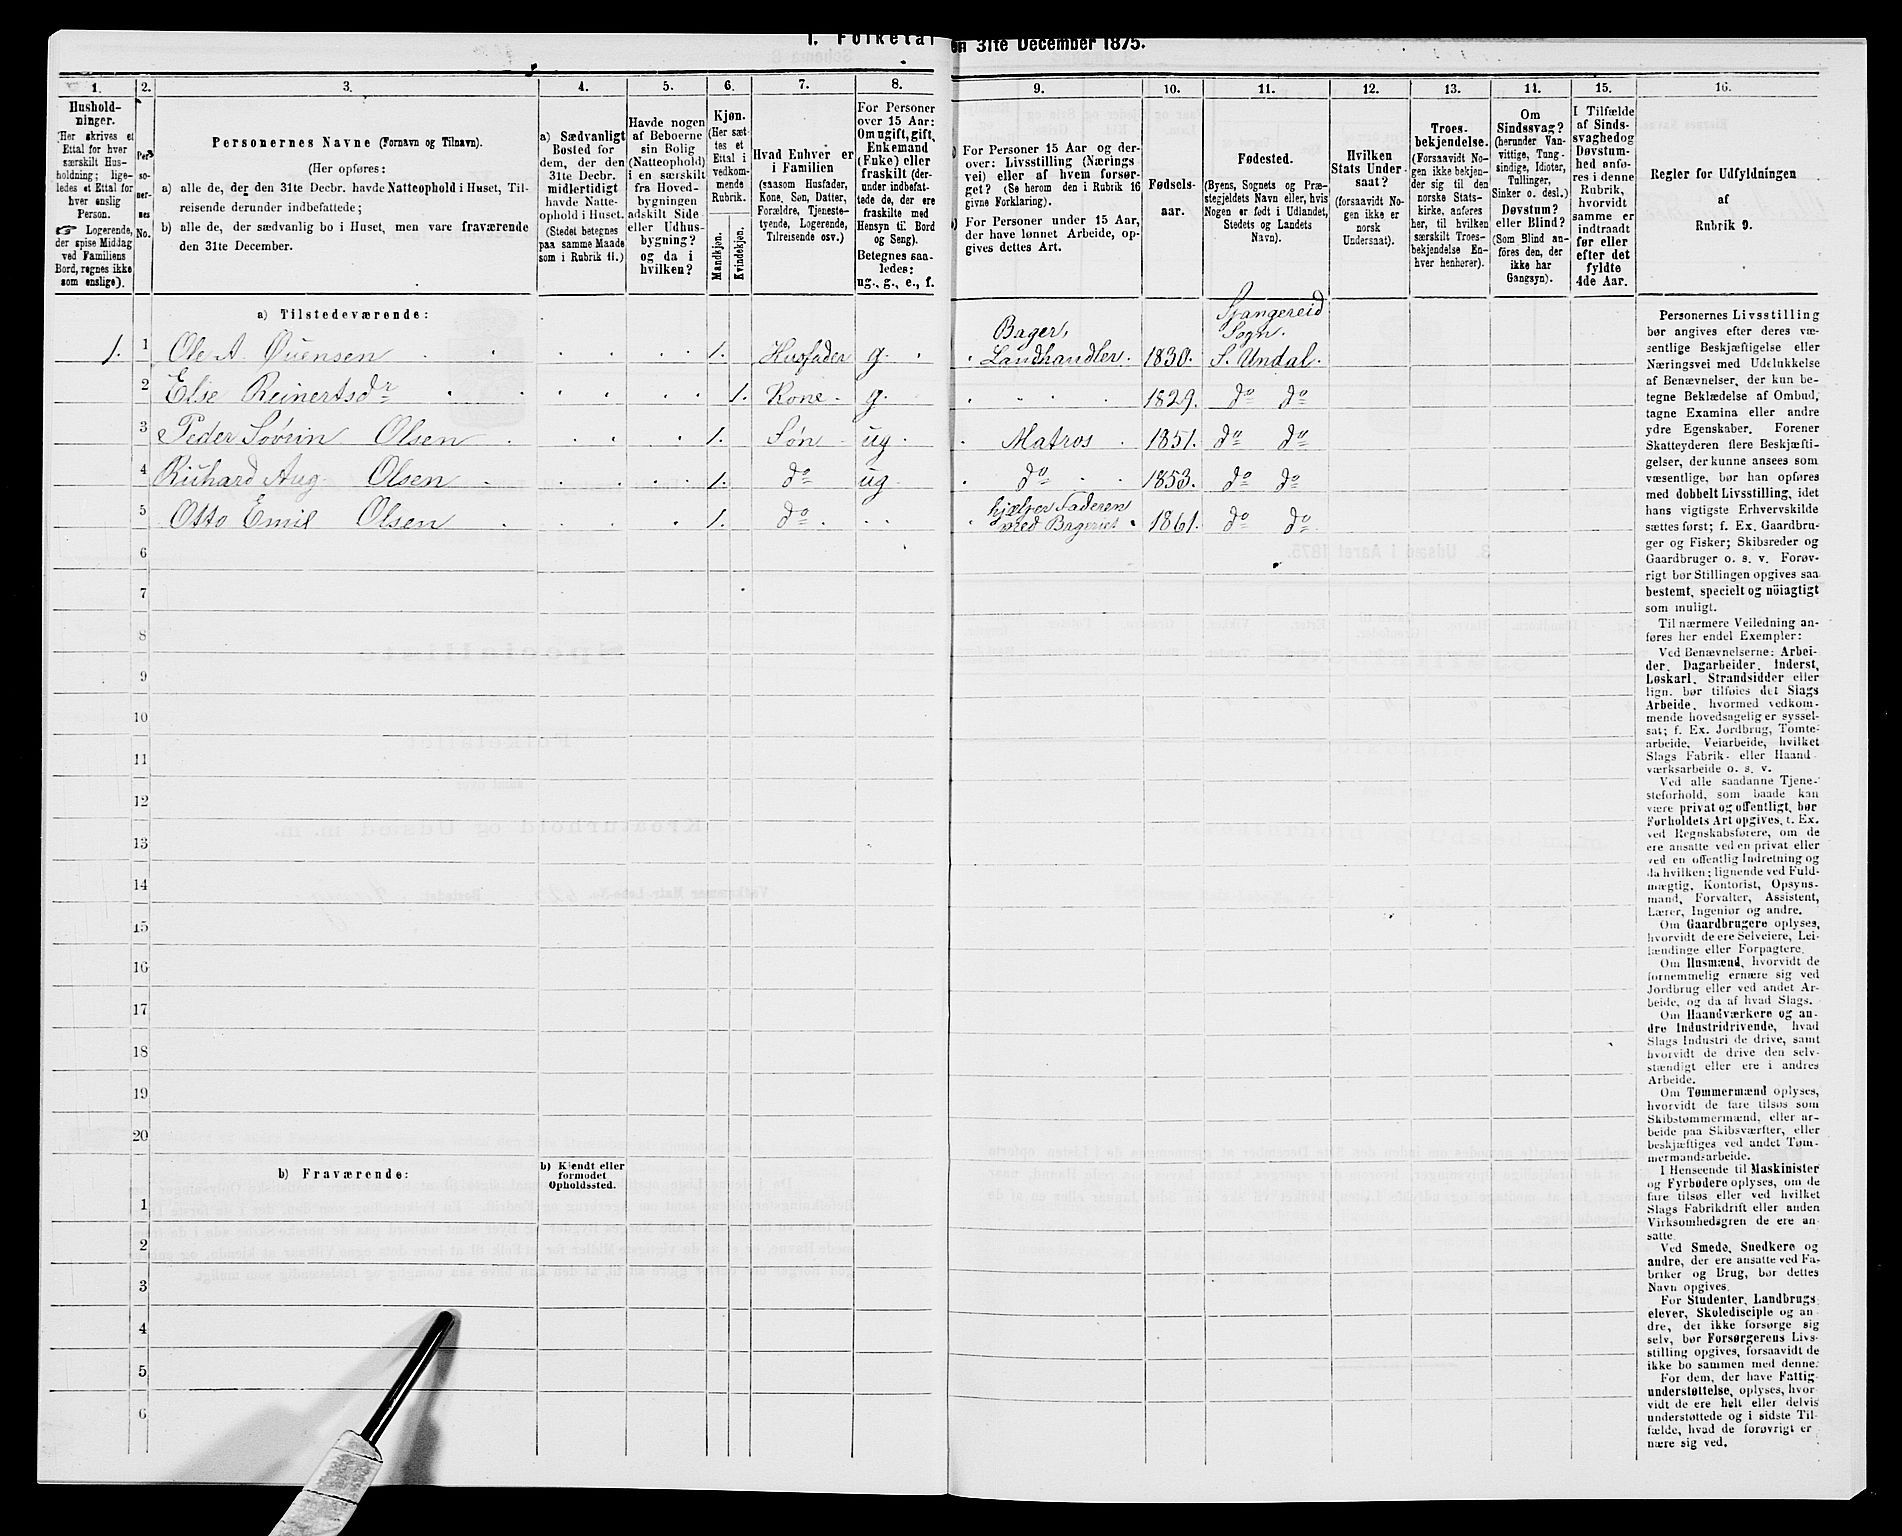 1. Folketal
en 31te December 1875.
1.
Hushold-
ninger.
(Her skrives et
Ettal for hver
særskilt Hus-
holdning; lige-
ledes et Ettal for
hver enslig
Person.
☞ Logerende,
der spise Middag
ved Familiens
Bord, regnes ikke
som enslige).
2.
Per
so-
ner-
nes
No.
3.
Personernes Navne (Fornavn og Tilnavn).
(Her opføres:
a) alle de, der den 31te Decbr. havde Natteophold i Huset, Til-
reisende derunder indbefattede;
b) alle de, der sædvanlig bo i Huset, men vare fraværende
den 31te December.
4.
a) Sædvanligt
Bosted for
dem, der den
31te Decbr.
midlertidigt
havde Natte-
ophold i Huset.
(Stedet betegnes
paa samme Maade
som i Rubrik 11.)
5.
Havde nogen
af Beboerne
sin Bolig
(Natteophold)
i en særskilt
fra Hoved-
bygningen
adskilt Side-
eller Udhus-
bygning?
og da i
hvilken?
6.
Kjøn.
(Her sæt-
tes et
Ettal i
vedkom-
mende
Rubrik.
Mandkjøn.
Kvindekjøn.
7.
Hvad Enhver er
i Familien
(saasom Husfader,
Kone, Søn, Datter,
Forældre, Tjeneste-
tyende, Logerende,
Tilreisende osv.)
8.
For Personer
over 15 Aar:
Om ugift, gift,
Enkemand
(Enke) eller
fraskilt (der-
under indbefat-
tede de, der ere
fraskilte med
Hensyn til Bord
og Seng).
Betegnes saa-
ledes:
ug., g., e., f.
9.
For Personer 15 Aar og der-
over: Livsstilling (Nærings
vei) eller af hvem forsør-
get? (Se herom den i Rubrik 16
givne Forklaring).
For Personer under 15 Aar,
der have lønnet Arbeide, op-
gives dettes Art.
10.
Fødsels-
aar.
11.
Fødested.
(Byens, Sognets og Præ-
stegjeldets Navn eller, hvis
Nogen er født i Udlandet,
Stedets og Landets
Navn).
12.
Hvilken
Stats Under-
saat?
(forsaavidt No-
gen ikke er
norsk
Undersaat).
13.
Troes-
bekjendelse.
(Forsaavidt No-
gen ikke bekjen-
der sig til den
norske Stats-
kirke, anføres
her, til hvilken
særskilt Troes-
bekjendelse En-
hver henhører).
14.
Om
Sindssvag?
(herunder Van-
vittige, Tung-
sindige, Idioter,
Tullinger,
Sinker o. desl.)
Døvstum?
eller Blind?
(Som Blind an-
føres den, der
ikke har
Gangsyn).
15.
I Tilfælde
af Sinds-
svaghed og
Døvstum-
hed anfø-
res i denne
Rubrik,
hvorvidt
samme er
indtraadt
før eller
efter det
fyldte
4de Aar.
16.
Regler for Udfyldningen
af
Rubrik 9.
a) Tilstedeværende:
1. 1 Ole A. Ouensen 1. Husfader g. Bager, Landhandler. 1830. Spangereid Sogn. S. Undal.
2 Else Reinertsdr 1. Kone g. 1829. do do
3 Peder Sövrin Olsen 1. Søn ug. Matros 1851. do do
4 Richard Aug. Olsen 1. do ug do 1853. do do
5 Otto Emil Olsen 1. do hjælper Faderen med Bageriet 1861. do do
6
7
8
9
10
11
12
13
14
15
16
17
18
19
20
b) Fraværende:
b) Kjendt eller
formodet
Opholdssted.
1
2
3
4
5
6
Personernes Livsstilling
bør angives efter deres væ-
sentlige Beskjæftigelse eller
Næringsvei med Udelukkelse
af Benævnelser, der kun be-
tegne Beklædelse af Ombud,
tagne Examina eller andre
ydre Egenskaber. Forener
Skatteyderen flere Beskjæfti-
gelser, der kunne ansees som
væsentlige, bør han opføres
med dobbelt Livsstilling, idet
hans vigtigste Erhvervskilde
sættes først; f. Ex. Gaardbru-
ger og Fisker; Skibsreder og
Gaardbruger o. s. v. Forøv-
rigt bør Stillingen opgives saa
bestemt, specielt og nöiagtigt
som muligt.
Til nærmere Veiledning an-
føres her endel Exempler:
Ved Benævnelserne: Arbei-
der, Dagarbeider, Inderst,
Løskarl, Strandsidder eller
lign. bør tilføies det Slags
Arbeide, hvormed vedkom-
mende hovedsagelig er syssel-
sat; f. Ex. Jordbrug, Tomte-
arbeide, Veiarbeide, hvilket
Slags Fabrik- eller Haand
værksarbeide o. s. v.
Ved alle saadanne Tjene-
steforhold, som baade kan
være privat og offentligt, bør
Forholdets Art opgives, f. Ex.
ved Regnskabsførere, om de
ere ansatte ved en privat eller
ved en offentlig Indretning og
da hvilken; lignende ved Fuld-
mægtig, Kontorist, Opsyns-
mand, Forvalter, Assistent,
Lærer, Ingeniør og andre.
Om Gaardbrugere oplyses,
hvorvidt de ere Selveiere, Lei-
lændinge eller Forpagtere.
Om Husmænd, hvorvidt de
fornemmelig ernære sig ved
Jordbrug eller ved andet Ar-
beide, og da af hvad Slags.
Om Haandværkere og an-
dre Industridrivende, hvad
Slags Industri de drive, samt
hvorvidt de drive den selv-
stændigt eller ere i andres
Arbeide.
Om Tømmermænd oplyses,
hvorvidt de fare tilsøs som
Skibstømmermænd, eller ar-
beide paa Skibsværfter, eller
beskjæftiges ved andet Tøm-
mermandsarbeide.
I Henseende til Maskinister
og Fyrbødere oplyses, om de
fare tilsøs eller ved hvilket
Slags Fabrikdrift eller anden
Virksomhedsgren de ere an-
satte.
Ved Smede, Snedkere og
andre, der ere ansatte ved Fa-
briker og Brug, bør dettes
Navn opgives.
For Studenter, Landbrugs
elever, Skoledisciple og an-
dre, der ikke forsørge sig
selv, bør Forsørgerens Livs-
stilling opgives, forsaavidt de
ikke bo sammen med denne.
For dem, der have Fattig
understøttelse, oplyses, hvor-
vidt de ere helt eller delvis
understøttede og i sidste Til-
fælde, hvad de forøvrigt er
nære sig ved.